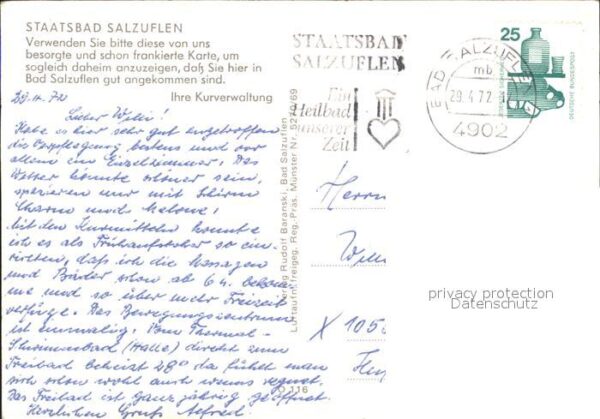 STAATSBAD SALZUFLEN
Verwenden Sie bitte diese von uns
besorgte und schon frankierte Karte, um
sogleich daheim anzuzeigen, daß Sie hier in
Bad Salzuflen gut angekommen sind.
Ihre Kurverwaltung
29.4.72
Lieber Willi!
Habe es hier sehr gut angetroffen
die Verpflegung bestens und vor
allem ein Einzelzimmer. Das
Wetter könnte schöner sein,
spazieren nur mit Schirm
Charme und Melone!
Mit den Kurmitteln konnte
ich es als Frühaufsteher so ein-
richten, daß ich die Massagen
und Bäder schon ab 6 h. bekom
me und so über mehr Freizeit
verfüge. Das Bewegungszentrum
ist einmalig. Vom Thermal-
Schwimmbad (Halle) direkt zum
Freibad beheizt 28° da fühlt man
sich schon wohl auch wenns regnet.
Das Freibad ist ganzjährig geöffnet.
Herzlichen Gruß Alfred
Verlag Rudolf Baranski, Bad Salzuflen
Luftaufn. freigeg. Reg.-Präs. Münster Nr. 5970/69
D 116
STAATSBAD
SALZUFLEN
Ein
Heilbad
unserer
Zeit
BAD SALZUFLEN 1
mb
29.4.72
4902
25
DEUTSCHE BUNDESPOST
Herrn
X 105
privacy protection
Datenschutz